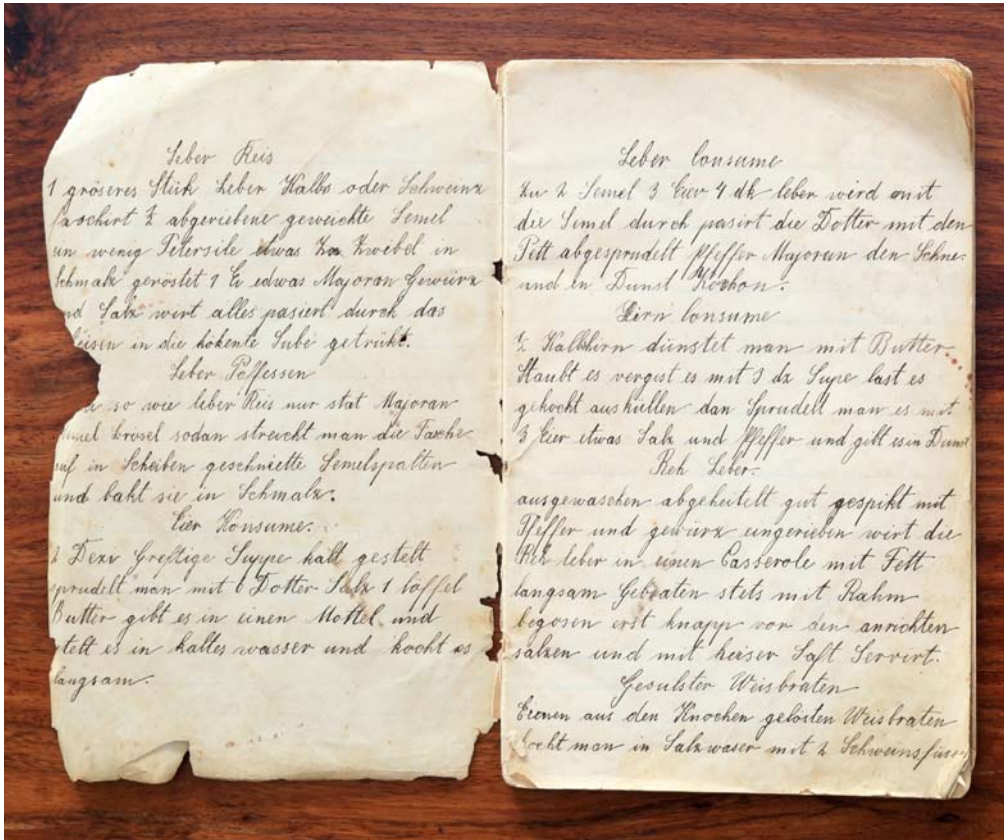 Leber Reis
1 gröseres Stük Leber Kalbs oder Schweinz
faschirt ½ abgeriebene geweichte Semel
un wenig Petersile etwas Zwebel in
Schmalz geröstet 1 Ei edwas Majoran Gewürz
nd Salz wirt alles pasiert durch das
eisen in die kökente Subé getrükt.
Leber Poffessen
so wie leber Reis nur stat Majoran
Brösel sodan streicht man die Fasche
auf in Scheiben geschniette Semelspalten
und bakt sie in Schmalz.
Eier Konsume.
2 Dezi Greftige Suppe kalt gestelt
sprudelt man mit 6 Dotter Salz 1 löffel
Butter gibt es in einen Mottel und
stelt es in kaltes wasser und kocht es
langsam.
Leber Consume
Zu 2 Semel 3 Eier 4 dk leber wird mit
die Simel durch pasirt die Dotter mit den
Fett abgesprudelt Pfeffer Majoran den Schne
und en Dunst Kochen.
Hirn Consume
½ Kalbhirn dünstet man mit Butter
Staubt es vergist es mit 3 dz Supe last es
gekocht auskullen dan Sprudelt man es mit
3 Eier etwas Salz und Pfeffer und gibt es in Dunst
Reh Leber.
ausgewaschen abgeheitelt gut gespikt mit
Pfeffer und gewürz eingerieben wirt die
Reh leber in einen Casserole mit Fett
langsam Gebraten stets mit Rahm
begosen erst knapp vor den anrichten
salzen und mit heiser Saft Servirt.
Gesulster Weisbraten
Eienen aus den Knochen gelösten Weisbraten
kocht man in Salzwaser mit 2 Schweinsfüse